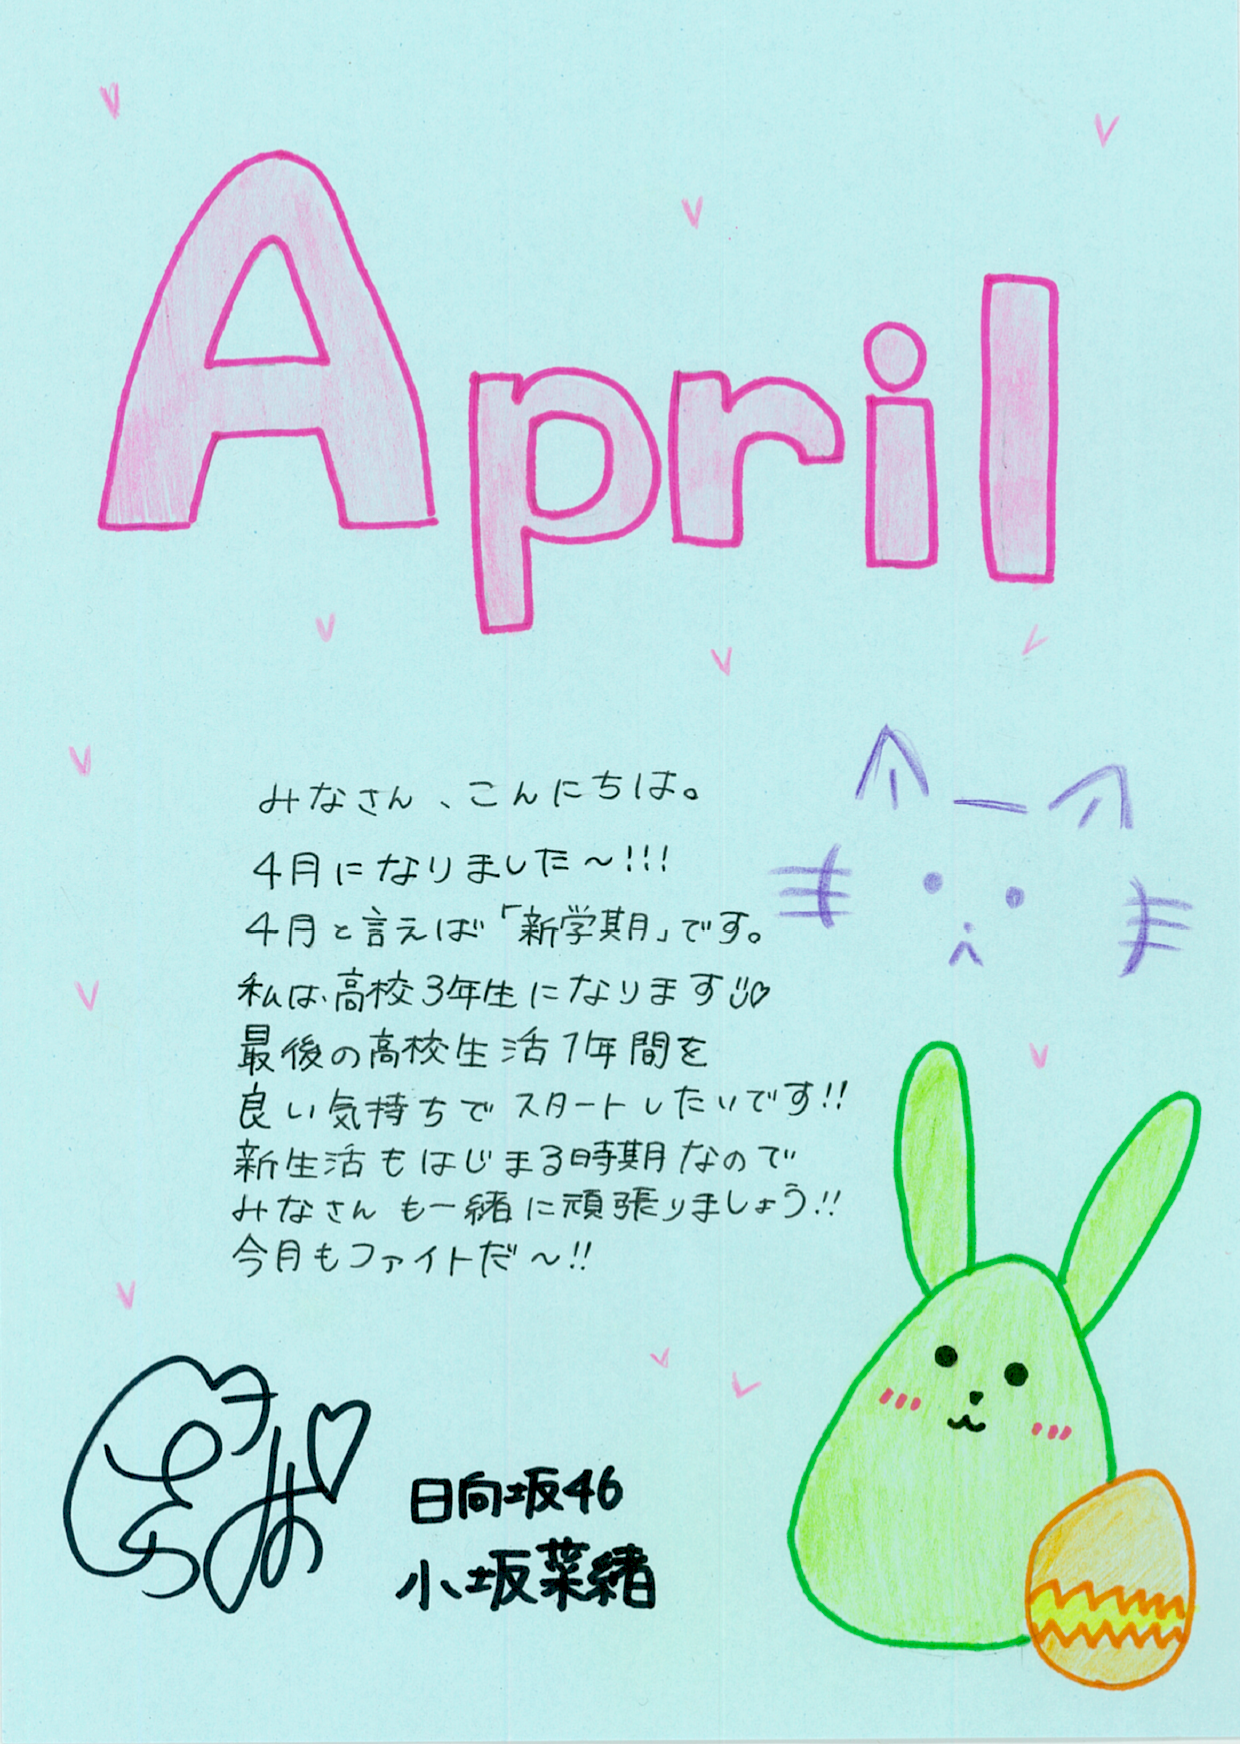 April
みなさん、こんにちは。
4月になりました～!!!
4月と言えば「新学期」です。
私は、高校3年生になります
最後の高校生活1年間を
良い気持ちでスタートしたいです!!
新生活もはじまる時期なので
みなさんも一緒に頑張りましょう!!
今月もファイトだ～!!
日向坂46
小坂菜緒